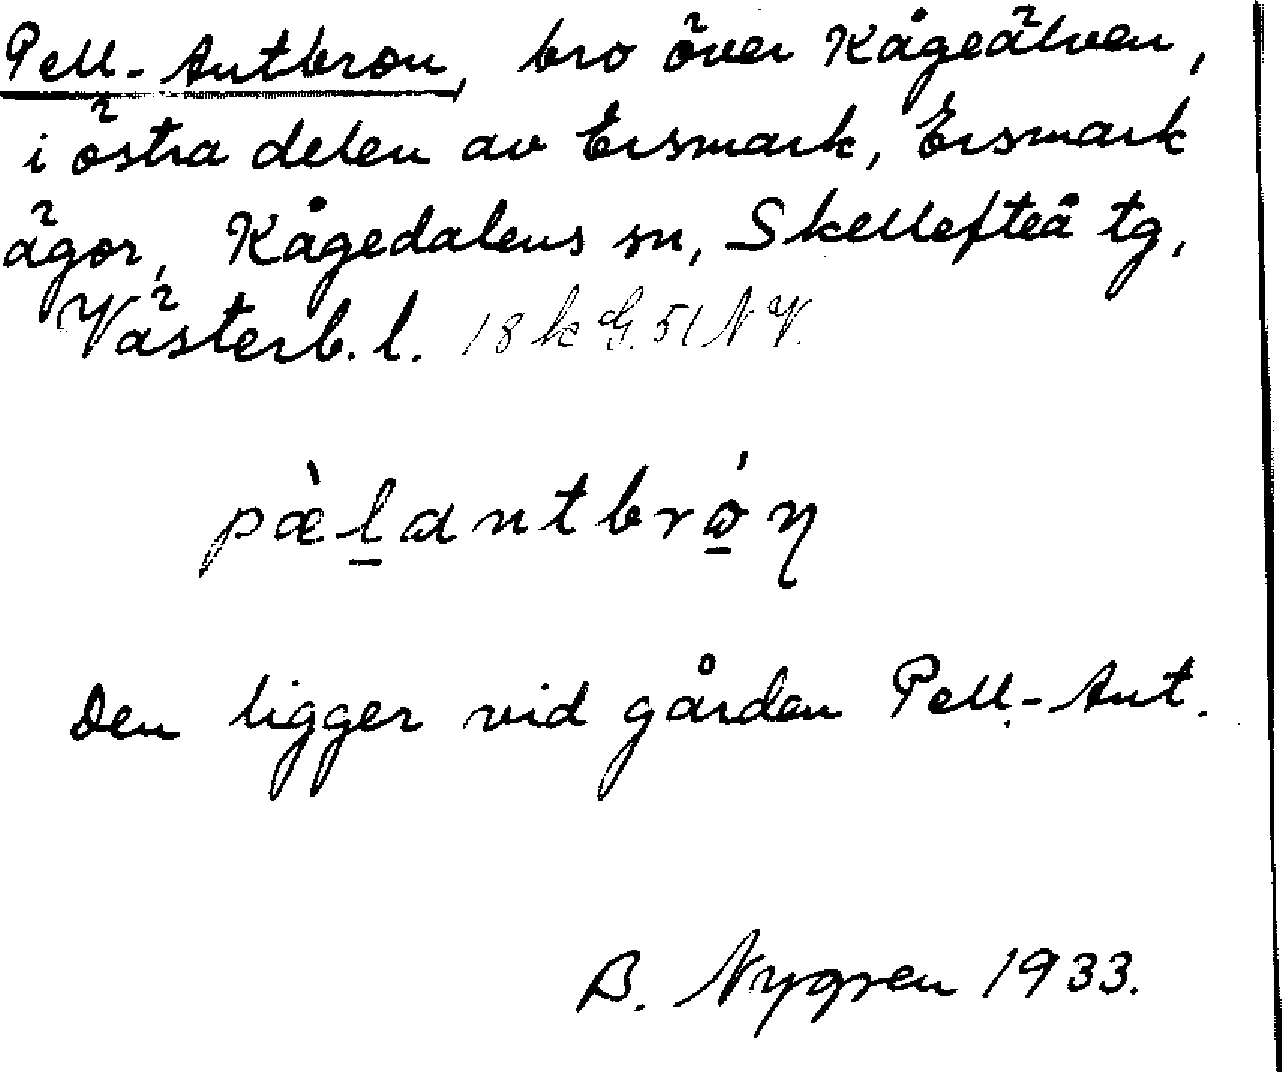 Pell-Antbron, bro över Kågeälven,
i östra delen av Ersmark, Ersmark
ägor, Kågedalens sn, Skellefteå tg,
Västerb. l. 18 k G. 51 NV.
pæ̀l̲antbró̲ŋ
Den ligger vid gården Pell-Ant.
B. Nygren 1933.